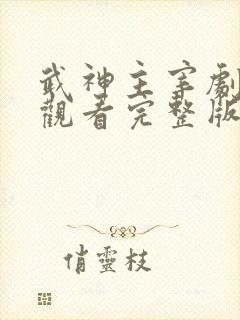 武神主宰劇
觀看完整版
俏靈枝